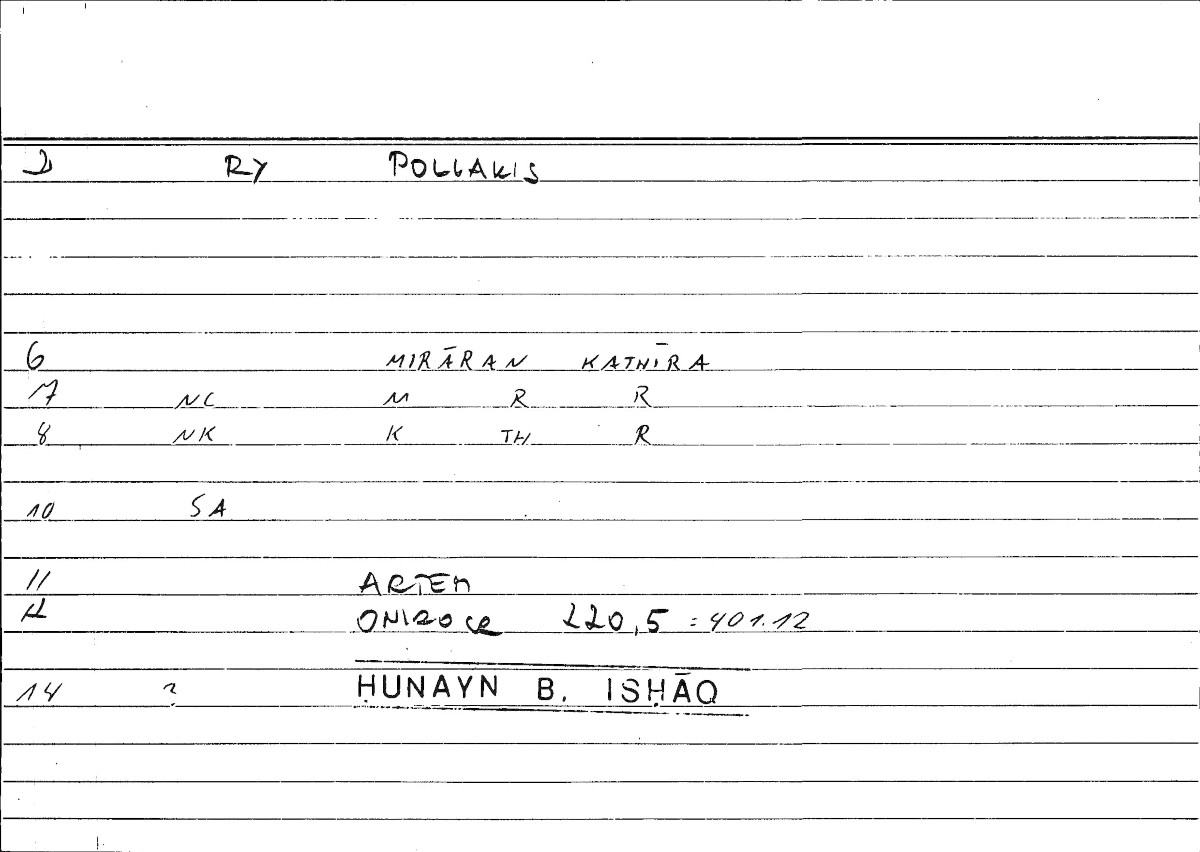 2 RY POLLAKIS
6 MIRĀRAN KATHĪRA
7 NC M R R
8 NK K TH R
10 SA
11 ARTEM
12 ONIROCR 220,5 = 401.12
14 ? ḤUNAYN B. ISḤĀQ